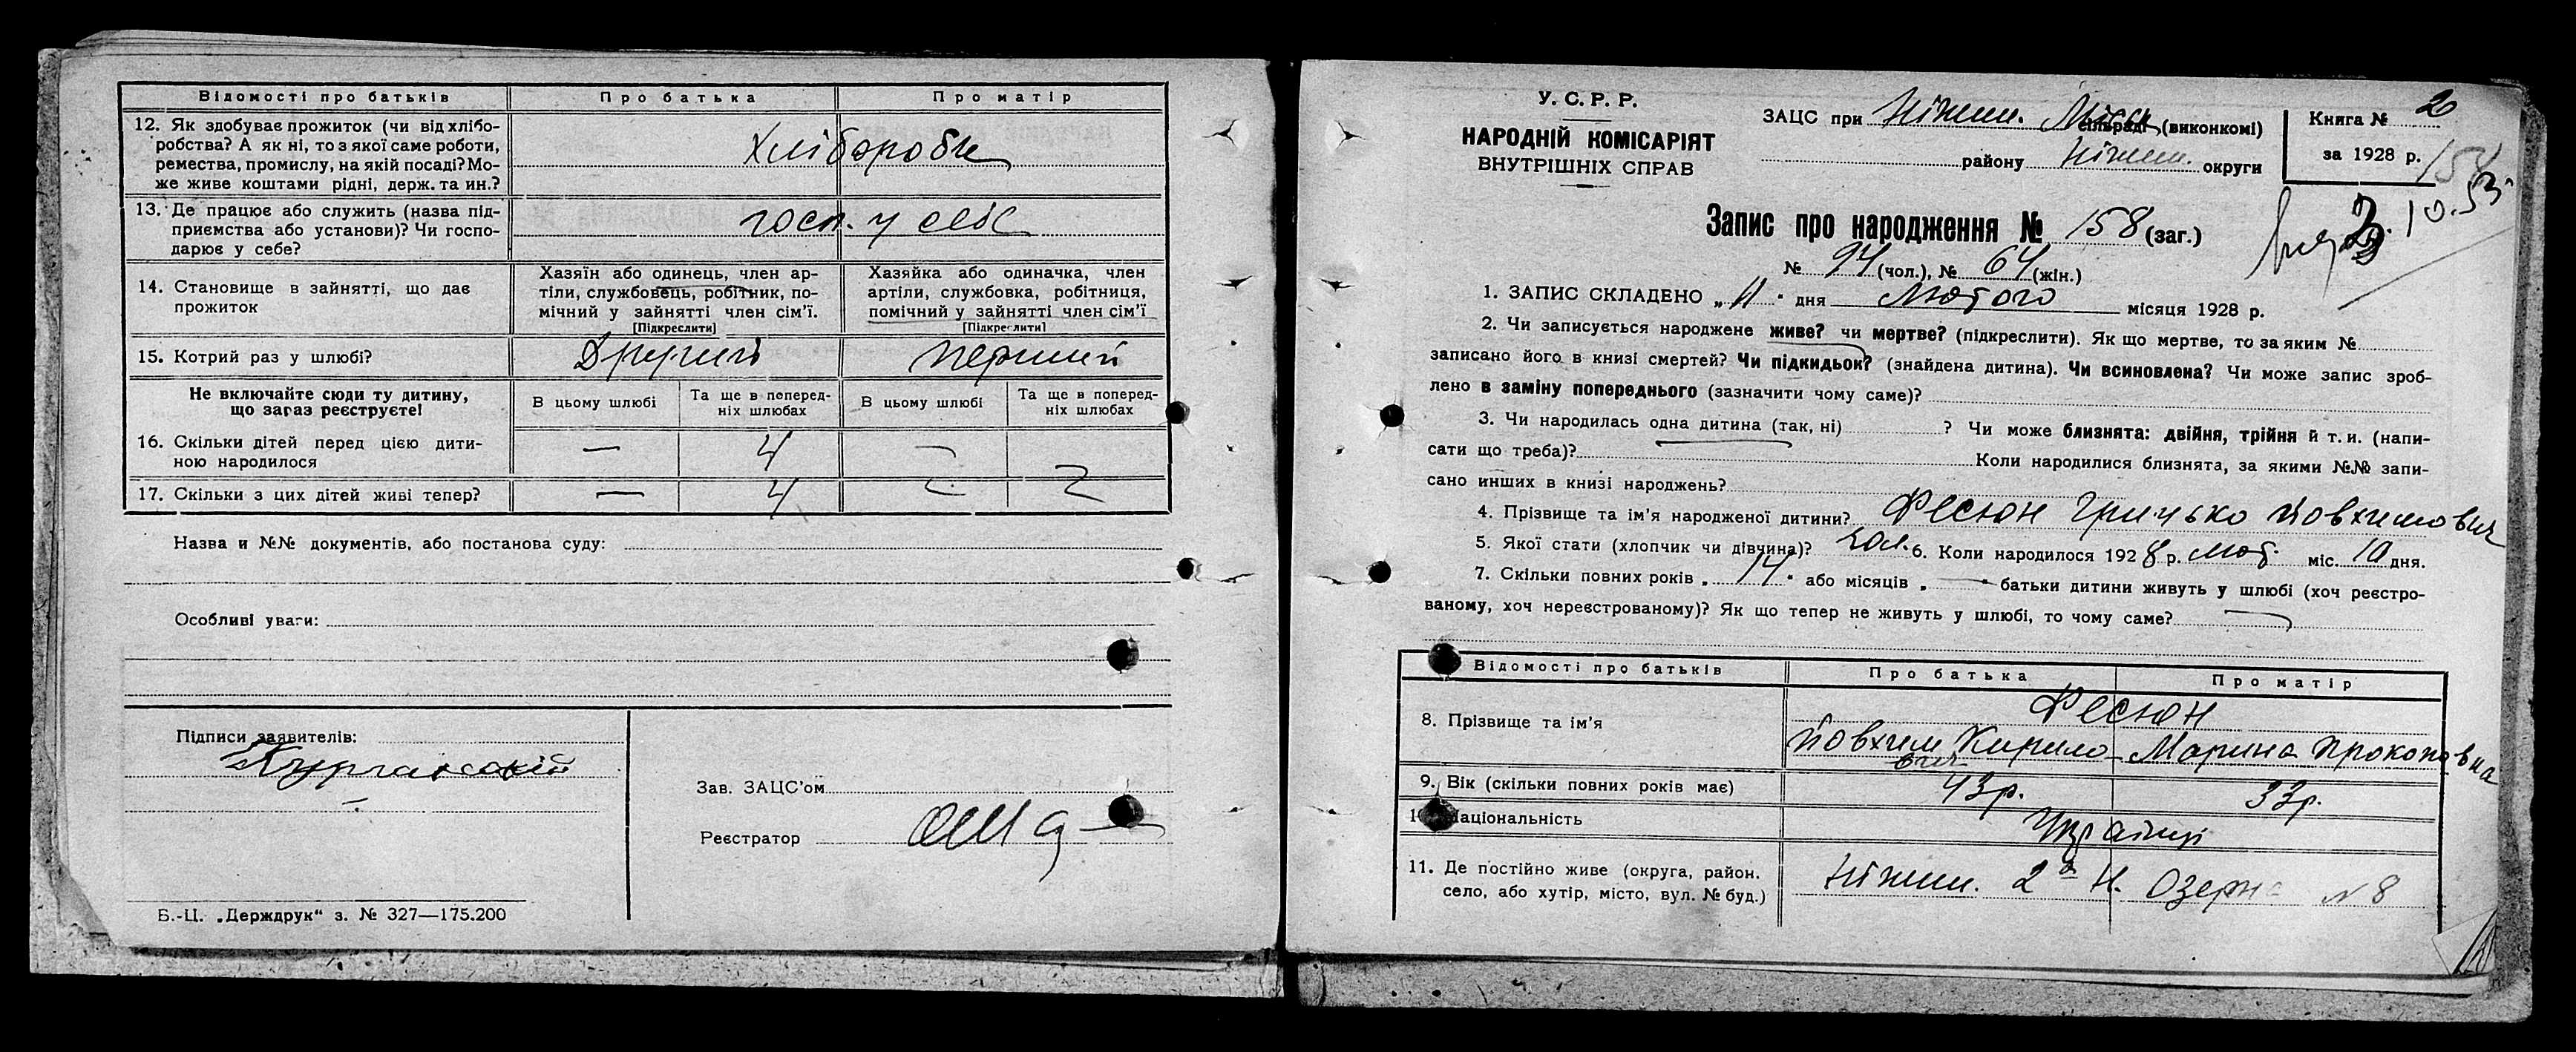 Відомості про батьків Про батька Про матір
12. Як здобуває прожиток (чи від хлібо-
робства? А як ні, то з якої саме роботи,
ремества, промислу, на якій посаді? Мо-
же живе коштами рідні, держ. та ин.?
Хлібороби
13. Де працює або служить (назва під-
приємства або установи)? Чи госпо-
дарює у себе?
госп. у себе
14. Становище в зайнятті, що дає
прожиток
Хазяїн або одинець, член ар-
тіли, службовець, робітник, по-
мічний у зайнятті член сім'ї.
[Підкреслити]
Хазяйка або одиначка, член
артіли, службовка, робітниця,
помічний у зайнятті член сім'ї
[Підкреслити]
15. Котрий раз у шлюбі? Другий перший
Не включайте сюди ту дитину,
що зараз реєструєте!
В цьому шлюбі
Та ще в поперед-
ніх шлюбах
В цьому шлюбі
Та ще в поперед-
ніх шлюбах
16. Скільки дітей перед цією дити-
ною народилося
— 4 —
17. Скільки з цих дітей живі тепер? — 4 —
Назва и №№ документів, або постанова суду:
Особливі уваги:
Підписи заявителів:
Зав. ЗАЦС'ом
Реєстратор
Б.-Ц. „Держдрук“ з. № 327—175.200
У. С. Р. Р.
НАРОДНІЙ КОМІСАРІЯТ
ВНУТРІШНІХ СПРАВ
ЗАЦС при Ніжин. Міськ сільраді (виконкомі)
району Ніжин. округи
Книга № 2
за 1928 р.
158
3.10.53
Запис про народження № 158 (заг.)
№ 94 (чол.), № 64 (жін.)
1. ЗАПИС СКЛАДЕНО „11“ дня Лютого місяця 1928 р.
2. Чи записується народжене живе? чи мертве? (підкреслити). Як що мертве, то за яким №
записано його в книзі смертей? Чи підкидьок? (знайдена дитина). Чи всиновлена? Чи може запис зроб-
лено в заміну попереднього (зазначити чому саме)?
3. Чи народилась одна дитина (так, ні) ? Чи може близнята: двійня, трійня й т. и. (напи-
сати що треба)? Коли народилися близнята, за якими №№ запи-
сано инших в книзі народжень?
4. Прізвище та ім'я народженої дитини? Фесюн Грицько Йовхимович
5. Якої стати (хлопчик чи дівчина)? хл. 6. Коли народилося 1928 р. лют. міс. 10 дня.
7. Скільки повних років „14“ або місяців „—“ батьки дитини живуть у шлюбі (хоч реєстро-
ваному, хоч нереєстрованому)? Як що тепер не живуть у шлюбі, то чому саме? —
Відомості про батьків Про батька Про матір
8. Прізвище та ім'я
Фесюн
Йовхим Кирило-
вич
Марина Прокоповна
9. Вік (скільки повних років має) 43 р. 33 р.
10. Національність Українці
11. Де постійно живе (округа, район.
село, або хутір, місто, вул. № буд.)
Ніжин. 2а Н. Озерна № 8